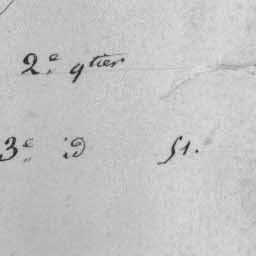 2.e qtier
3.e id 51.